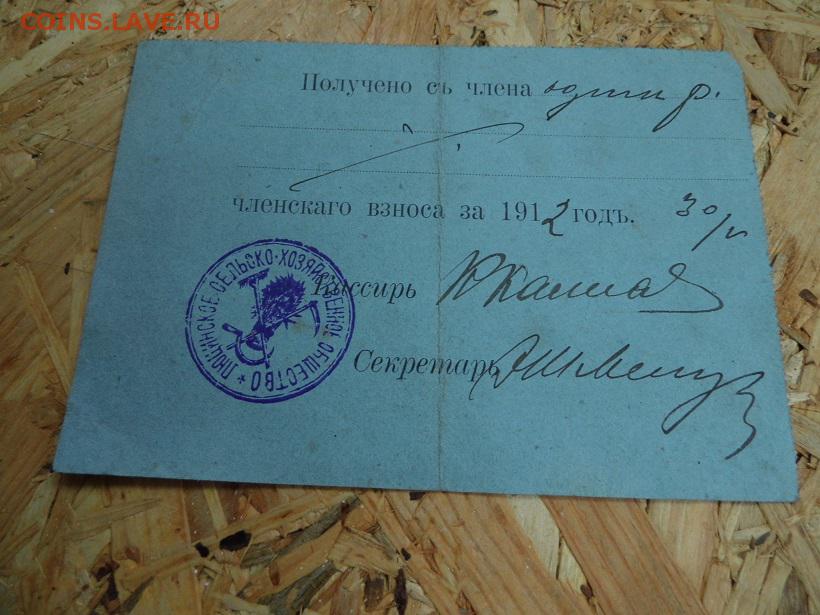 COINS.LAVE.RU
Получено съ члена один р.
членскаго взноса за 1912 годъ. 30/V
Кассиръ
Секретарь
ЛЮЦИНСКОЕ СЕЛЬСКО-ХОЗЯЙСТВЕННОЕ ОБЩЕСТВО *